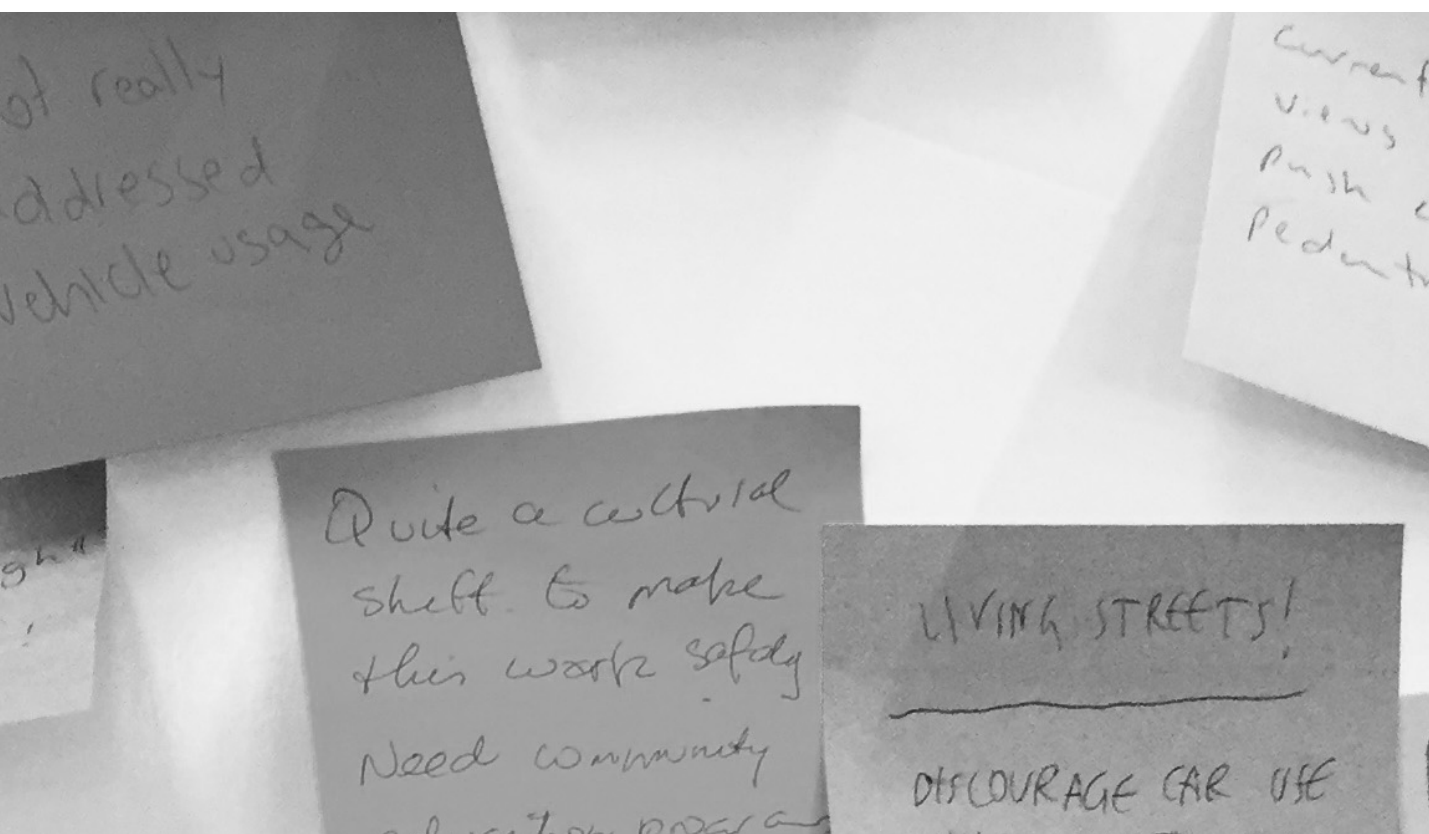 ot really
ddressed
vehicle usage
Current
views
push
Pedestr
Quite a cultural
shift to make
this work safely
Need community
education program
LIVING STREETS!
DISCOURAGE CAR USE